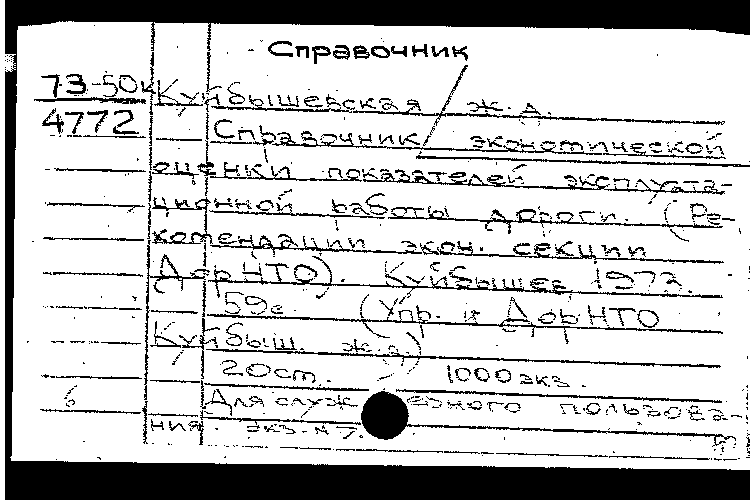 Справочник
73-50к Куйбышевская ж.д.
4772 Справочник экономической
оценки показателей эксплуата-
ционной работы дороги. (Ре-
комендации экон. секции
ДорНТО). Куйбышев, 1973.
59с (Упр. и ДорНТО
Куйбыш. ж.д.)
20ст. 1000экз.
б Для служебного пользова-
ния. экз.